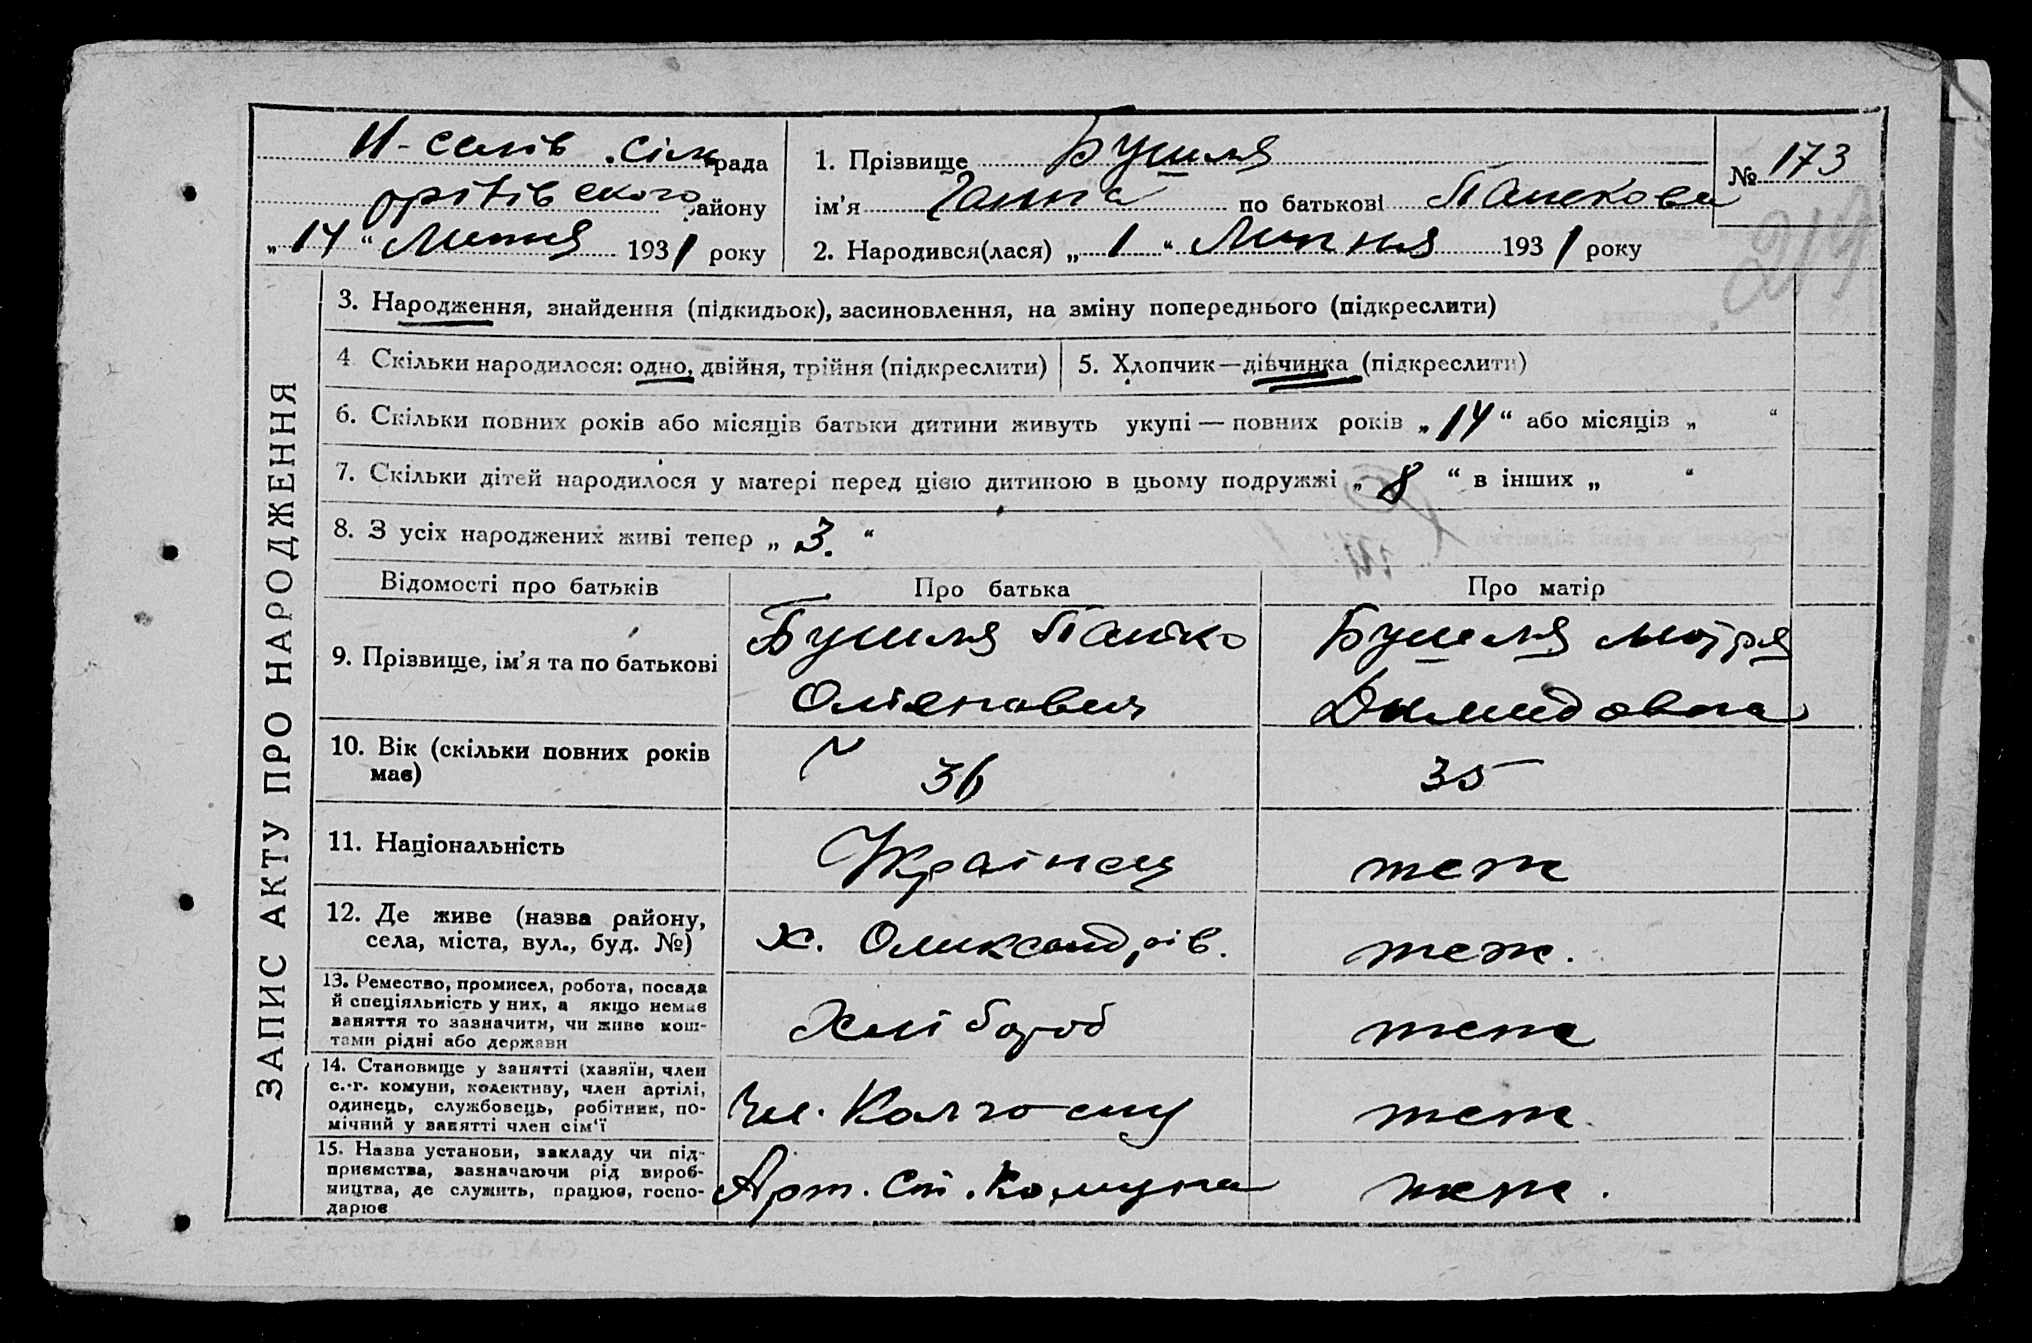 Н-селів. сільрада
району
„ 14 “ Липня 1931 року
1. Прізвище Бушля
ім'я Ганна по батькові Панькова
2. Народився(лася) „ 1 “ Липня 1931 року
№ 173
219
ЗАПИС АКТУ ПРО НАРОДЖЕННЯ
3. Народження, знайдення (підкидьок), засиновлення, на зміну попереднього (підкреслити)
4 Скільки народилося: одно, двійня, трійня (підкреслити)
5. Хлопчик—дівчинка (підкреслити)
6. Скільки повних років або місяців батьки дитини живуть укупі — повних років „ 14 “ або місяців „ “
7. Скільки дітей народилося у матері перед цією дитиною в цьому подружжі „ 8 “ в інших „ “
8. З усіх народжених живі тепер „ 3. “
Відомості про батьків
Про батька
Про матір
9. Прізвище, ім'я та по батькові
Бушля Панько
Бушля Мотря
Омелянович
Дымидовна
10. Вік (скільки повних років
має)
36
35
11. Національність
Українец
теж
12. Де живе (назва району,
села, міста, вул., буд. №)
х. Олександрів.
теж.
13. Ремество, промисел, робота, посада
й спеціяльність у них, а якщо немає
заняття то зазначити, чи живе кош-
тами рідні або держави
Хлібороб
теж
14. Становище у занятті (хазяїн, член
с.-г. комуни, колективу, член артілі,
одинець, службовець, робітник, по-
мічний у занятті член сім'ї
Чл. Колгоспу
теж
15. Назва установи, закладу чи під-
приємства, зазначаючи рід вироб-
ництва, де служить, працює, госпо-
дарює
Арт. Ст. Комуна
теж.